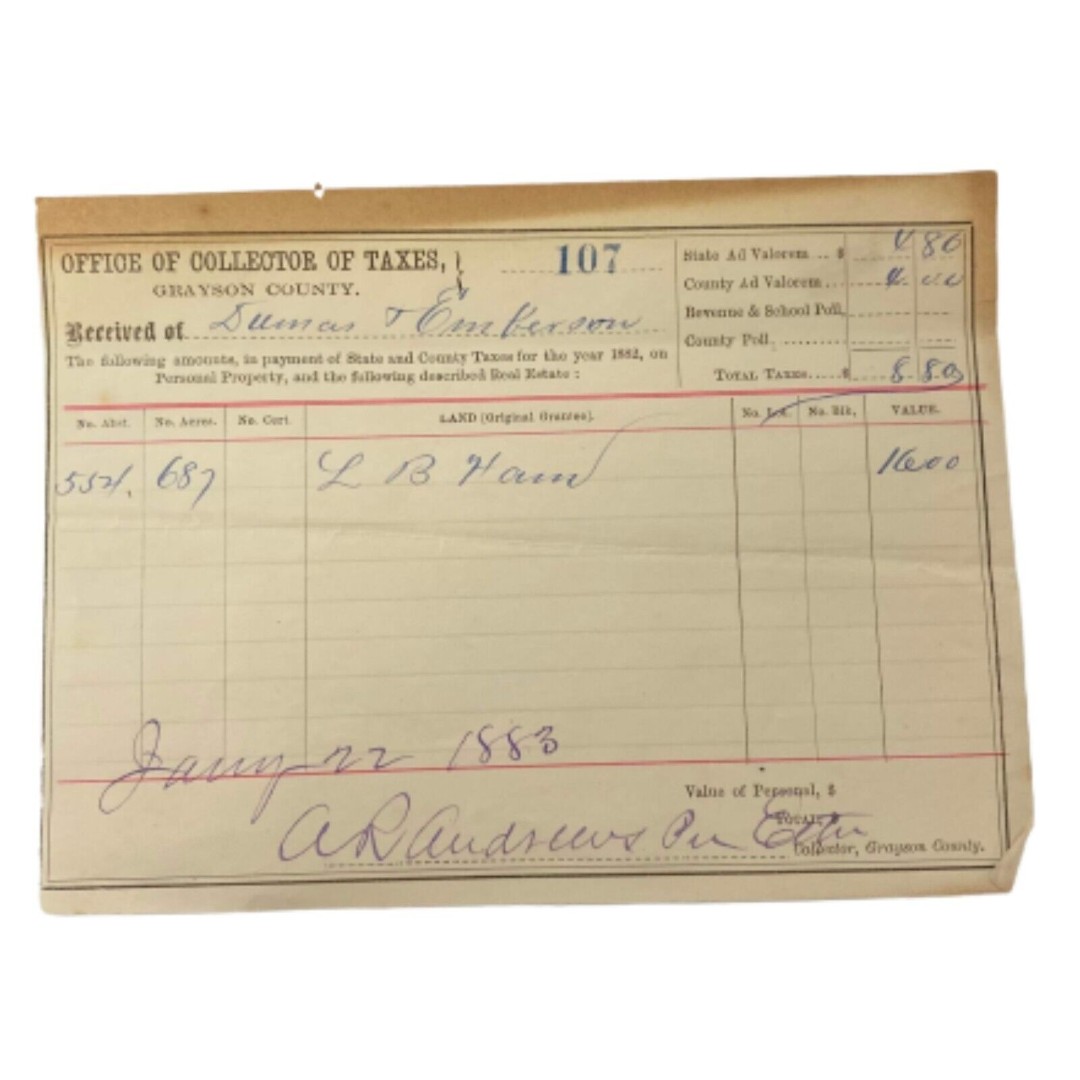 OFFICE OF COLLECTOR OF TAXES, } 107
GRAYSON COUNTY.
Received of Dumas & Emberson
The following amounts, in payment of State and County Taxes for the year 1882, on
Personal Property, and the following described Real Estate:
State Ad Valorem .. $ 4 80
County Ad Valorem... 4.00
Revenue & School Poll,
County Poll
TOTAL TAXES.....$ 8.80
No. Abst. No. Acres. No. Cert. LAND (Original Grantee). No. Lot. No. Blk, VALUE.
554. 687 L B Ham 1600
Jany 22 1883
Value of Personal, $
TOTAL
A R Andrews Per
Collector, Grayson County.